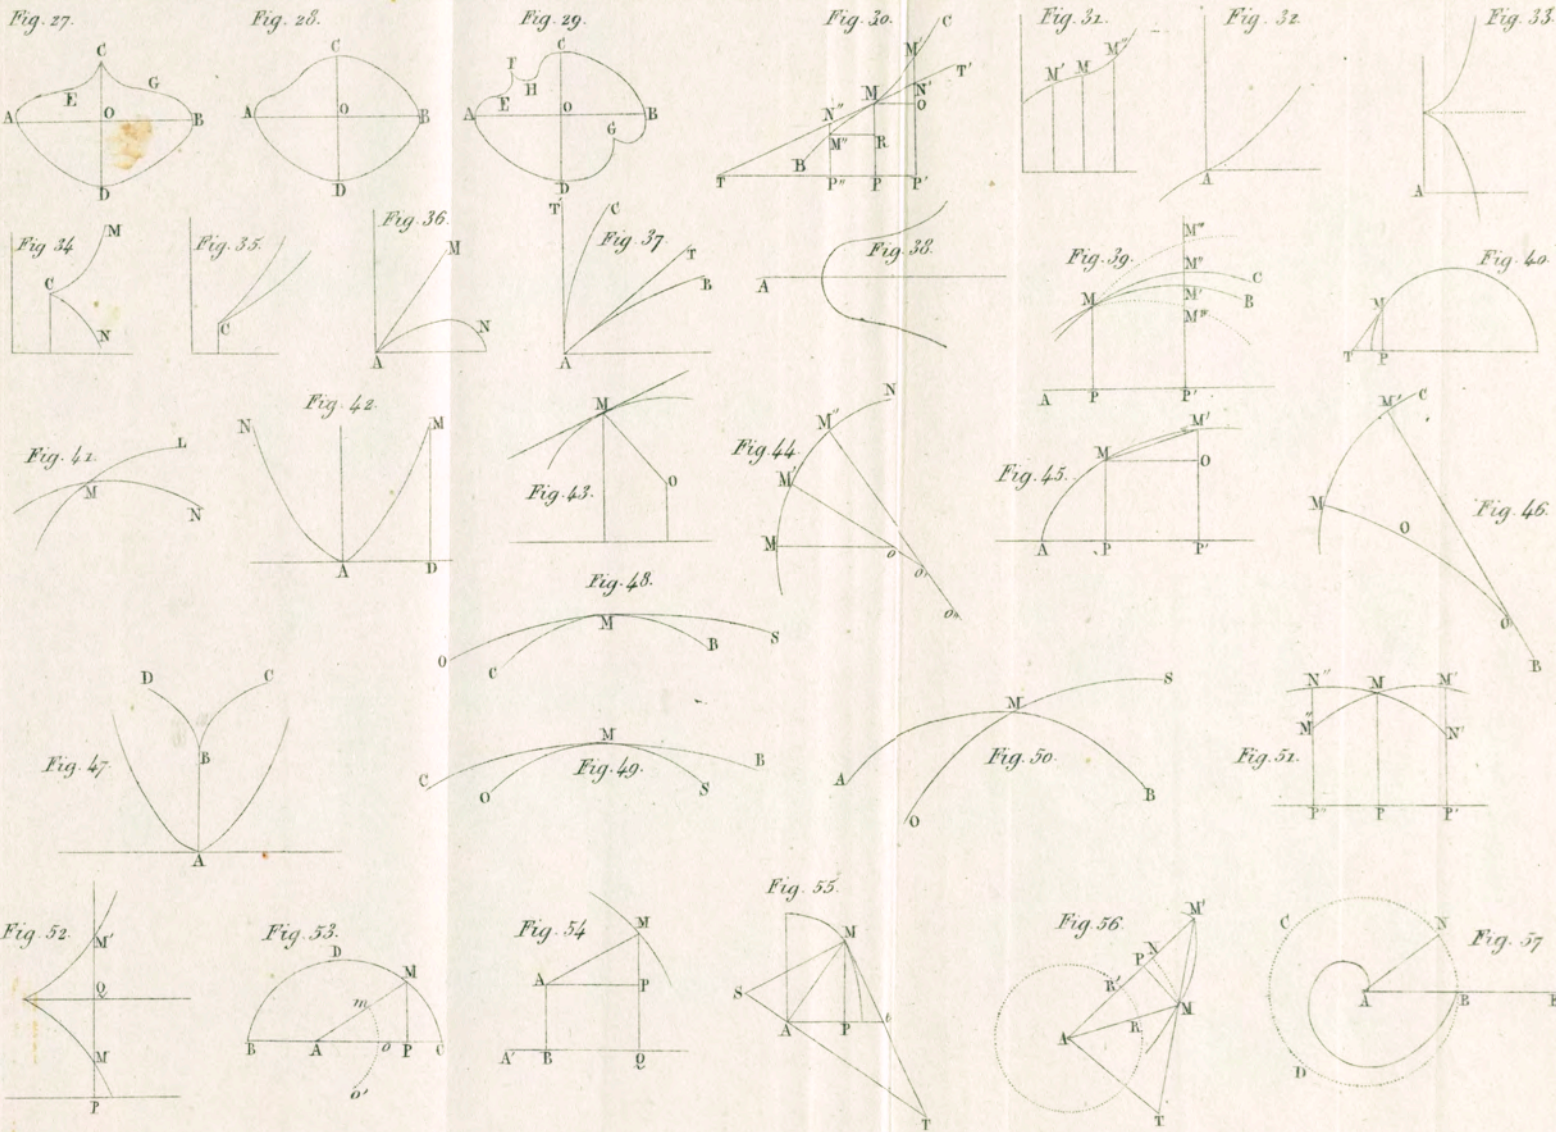 Fig. 27.
C
G
E
A
O
B
D
Fig. 28.
C
A
O
B
D
Fig. 29.
C
F
H
E
A
O
B
G
D
Fig. 30.
C
M'
T'
M
N'
O
N"
M"
R
B
T
P"
P
P'
Fig. 31.
M'
M
M"
Fig. 32.
A
Fig. 33.
A
Fig. 34
M
C
N
Fig. 35.
C
Fig. 36.
M
N
A
Fig. 37.
T'
C
T
B
A
Fig. 38.
A
Fig. 39.
M'''
M"
C
M
M'
B
A
P
P'
Fig. 40.
M
T
P
Fig. 41.
L
M
N
Fig. 42.
N
M
A
D
Fig. 43.
M
O
Fig. 44.
N
M"
M'
M
o
Fig. 45.
M'
M
O
A
P
P'
Fig. 46.
M'
C
M
O
B
Fig. 47.
D
C
B
A
Fig. 48.
M
O
C
B
S
Fig. 49.
M
C
B
O
S
Fig. 50.
S
M
A
B
O
Fig. 51.
N"
M
M'
M"
N'
P"
P
P'
Fig. 52.
M'
Q
M
P
Fig. 53.
D
M
m
B
A
o
P
C
o'
Fig. 54
M
A
P
A'
B
Q
Fig. 55.
M
S
A
P
t
T
Fig. 56.
M'
P
N
R'
M
R
A
T
Fig. 57
C
N
A
B
D